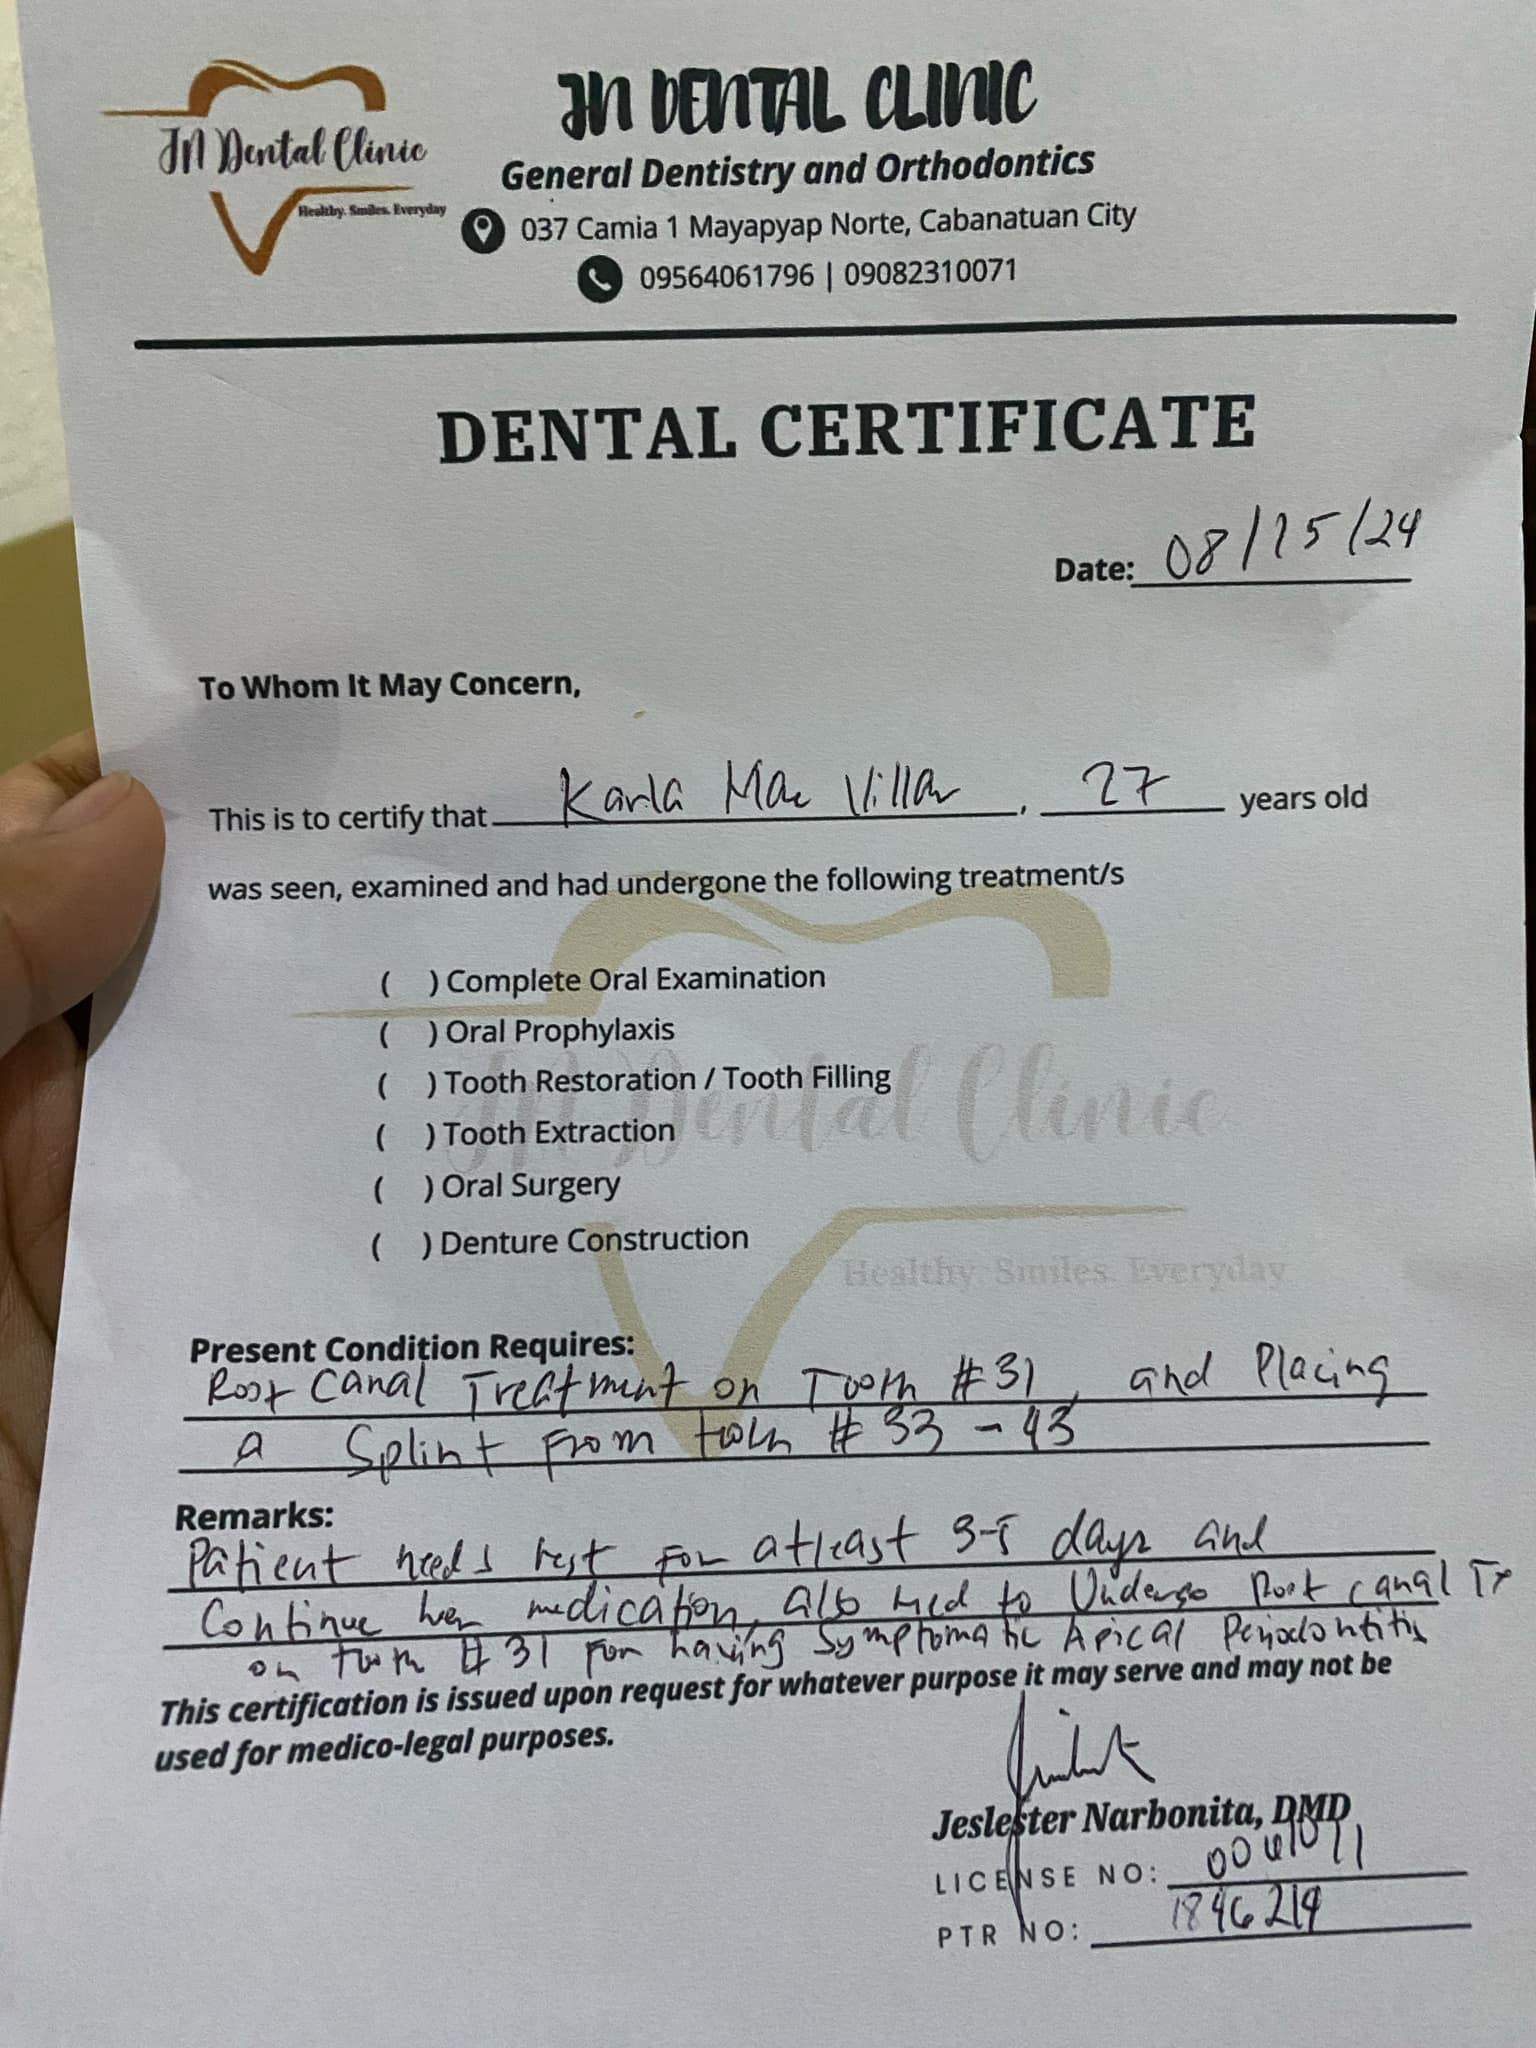 JN Dental Clinic
Healthy. Smiles. Everyday
JN DENTAL CLINIC
General Dentistry and Orthodontics
037 Camia 1 Mayapyap Norte, Cabanatuan City
09564061796 | 09082310071
DENTAL CERTIFICATE
Date: 08/15/24
To Whom It May Concern,
This is to certify that Karla Mae Villar, 27 years old
was seen, examined and had undergone the following treatment/s
( ) Complete Oral Examination
( ) Oral Prophylaxis
( ) Tooth Restoration / Tooth Filling
( ) Tooth Extraction
( ) Oral Surgery
( ) Denture Construction
JN Dental Clinic
Healthy. Smiles. Everyday
Present Condition Requires:
Root Canal Treatment on Tooth #31, and Placing
a Splint From tooth # 33 - 43
Remarks:
Patient needs rest for atleast 3-5 days and
Continue her medication, also need to Undergo Root canal Tx
on tooth #31 for having Symptomatic Apical Periodontitis
This certification is issued upon request for whatever purpose it may serve and may not be
used for medico-legal purposes.
Jeslester Narbonita, DMD
LICENSE NO:
PTR NO: 1846214